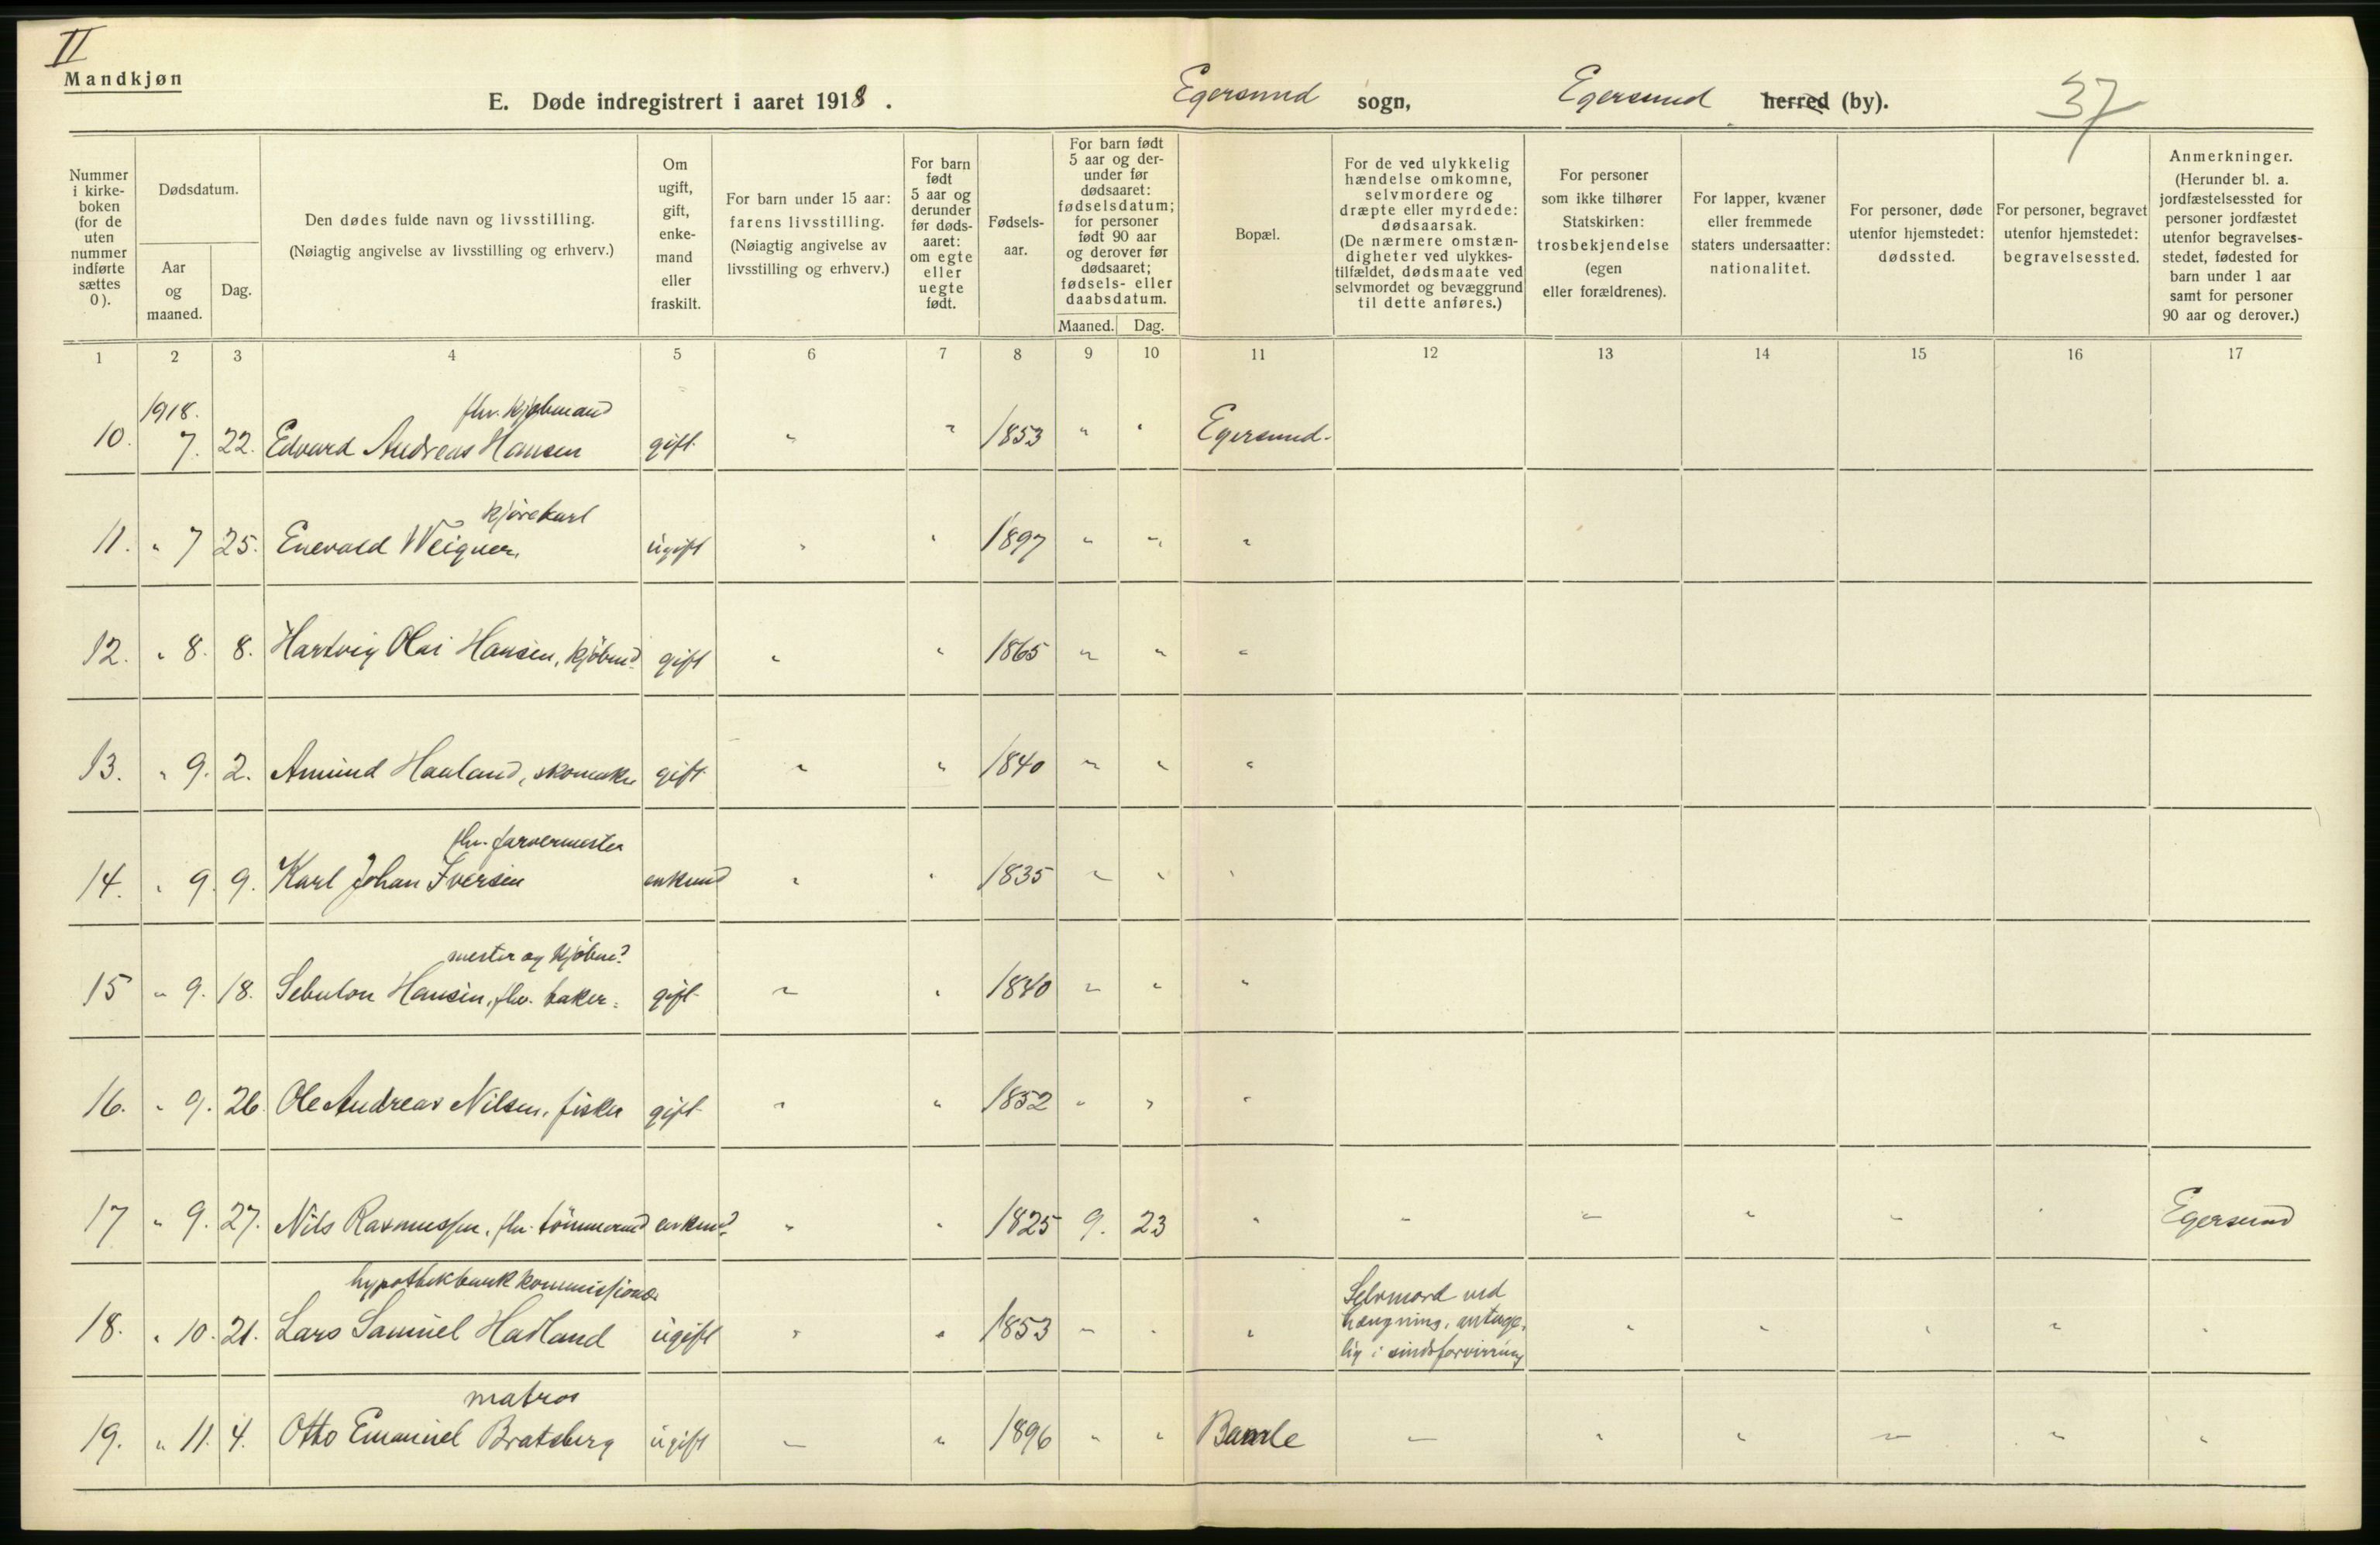 II
Mandkjøn
E. Døde indregistrert i aaret 1918. Egersund sogn, Egersund herred (by). 37
Nummer i kirke-boken (for de uten nummer indførte sættes 0).
Dødsdatum.
Aar og maaned.
Dag.
Den dødes fulde navn og livsstilling.
(Nøiagtig angivelse av livsstilling og erhverv.)
Om ugift, gift, enke-mand eller fraskilt.
For barn under 15 aar: farens livsstilling.
(Nøiagtig angivelse av livsstilling og erhverv.)
For barn født 5 aar og derunder før døds-aaret: om egte eller uegte født.
Fødsels-aar.
For barn født 5 aar og der-under før dødsaaret: fødselsdatum; for personer født 90 aar og derover før dødsaaret; fødsels- eller daabsdatum.
Maaned. Dag.
Bopæl.
For de ved ulykkelig hændelse omkomne, selvmordere og dræpte eller myrdede: dødsaarsak.
(De nærmere omstæn-digheter ved ulykkes-tilfældet, dødsmaate ved selvmordet og bevæggrund til dette anføres.)
For personer som ikke tilhører Statskirken: trosbekjendelse (egen eller forældrenes).
For lapper, kvæner eller fremmede staters undersaatter: nationalitet.
For personer, døde utenfor hjemstedet: dødssted.
For personer, begravet utenfor hjemstedet: begravelsessted.
Anmerkninger.
(Herunder bl. a. jordfæstelsessted for personer jordfæstet utenfor begravelses-stedet, fødested for barn under 1 aar samt for personer 90 aar og derover.)
1 2 3 4 5 6 7 8 9 10 11 12 13 14 15 16 17
1918. fhv. kjøbmand
10. 7. 22. Edvard Andreas Hansen gift " " 1853 " " Egersund.
kjørekarl
11. " 7 25. Enevald Weigner, ugift " " 1897 " " "
12. " 8. 8. Hartvig Olai Hansen, kjøbmd gift " " 1865 " " "
13. " 9. 2. Amund Haaland, skomaker gift " " 1840 " " "
fhv. farvermester
14. " 9. 9. Karl Johan Iversen enkemd " " 1835 " " "
mester og kjøbmd
15 " 9. 18. Sebulon Hansen, fhv. baker= gift " " 1840 " " "
16. " 9. 26. Ole Andreas Nilsen, fisker gift " " 1852 " " "
17 " 9. 27. Nils Rasmussen, fhv. tømmermd enkemd " " 1825 9. 23 " " " " " " Egersund
hypothekbankkommissionær
18. " 10. 21. Lars Samuel Hadland ugift " " 1853 " " " Selvmord ved hængning, antage-lig i sindsforvirring " " " " "
matros
19. " 11. 4. Otto Emanuel Bratsberg ugift " " 1896 " " Bamle " " " " " "